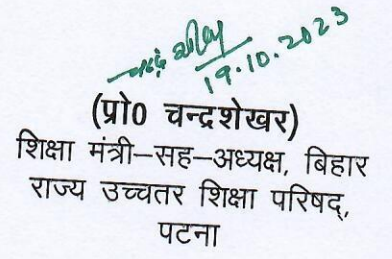 चन्द्रशेखर
19.10.2023
(प्रो0 चन्द्रशेखर)
शिक्षा मंत्री–सह–अध्यक्ष, बिहार
राज्य उच्चतर शिक्षा परिषद्,
पटना